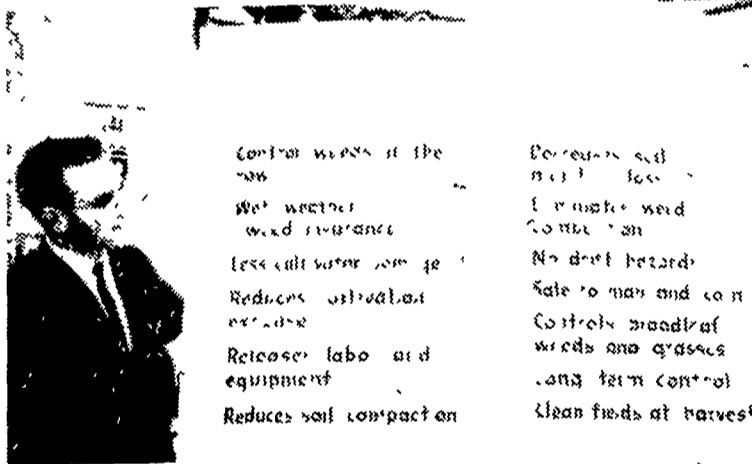 Control weeds in the
row
Wet weather
weed insurance
Less cultivator
Reduces cultivation
Releases labor and
equipment
Reduces soil compaction
Decreases soil
loss
Eliminates weed
No drift hazards
Safe to man and
Controls broadleaf
weeds and grasses
Long term control
Clean fields at harvest